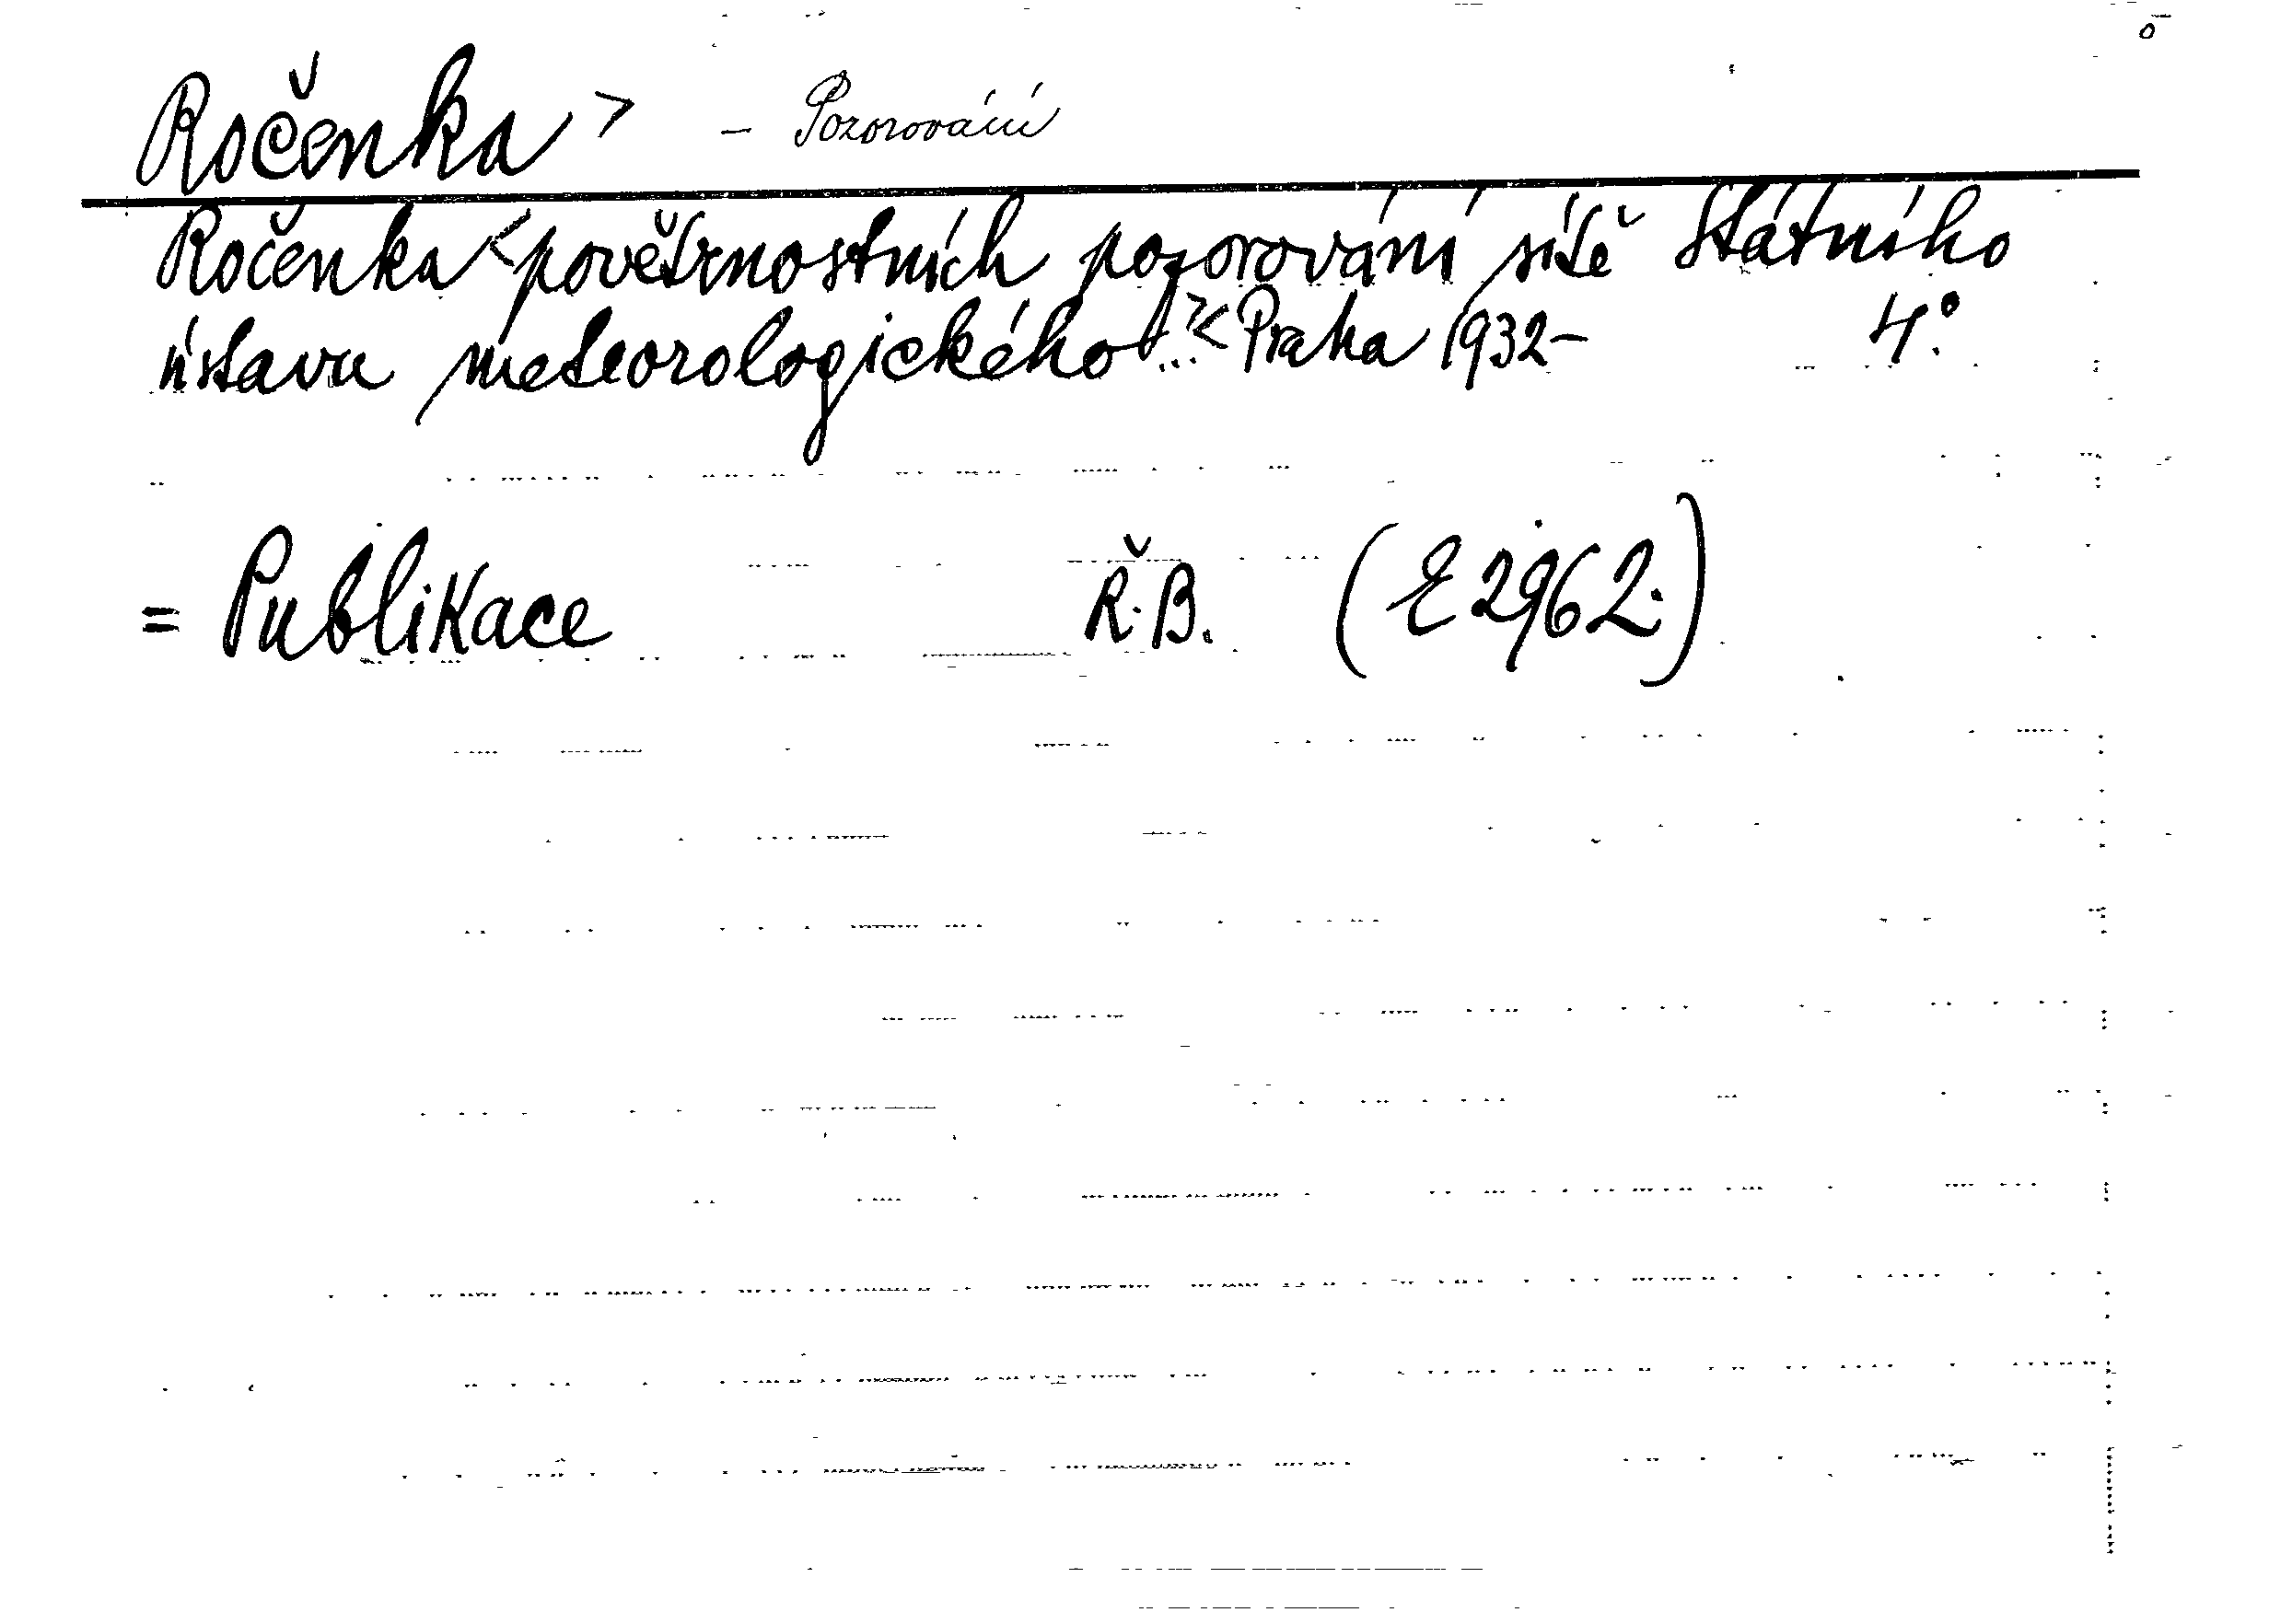 Ročenka > – Pozorování
Ročenka < povětrnostních pozorování sítě Státního
ústavu meteorologického...>< Praha 1932– 4°.
= Publikace Ř.B. (E 2962.)